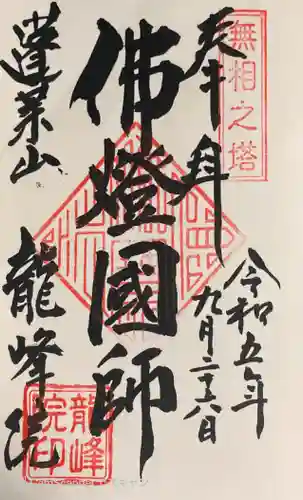 無相之塔
奉拝
令和五年
九月二十八日
佛燈國師
蓬莱山
龍峰院
龍峰
院印